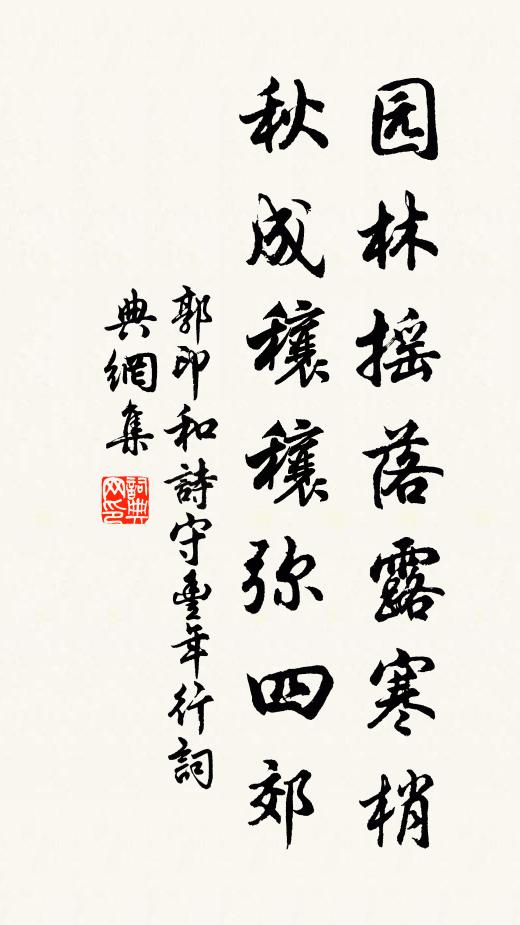 园林摇落露寒梢
秋成穰穰弥四郊
郭印和詩守豊年行詞
典網集
詞典网印